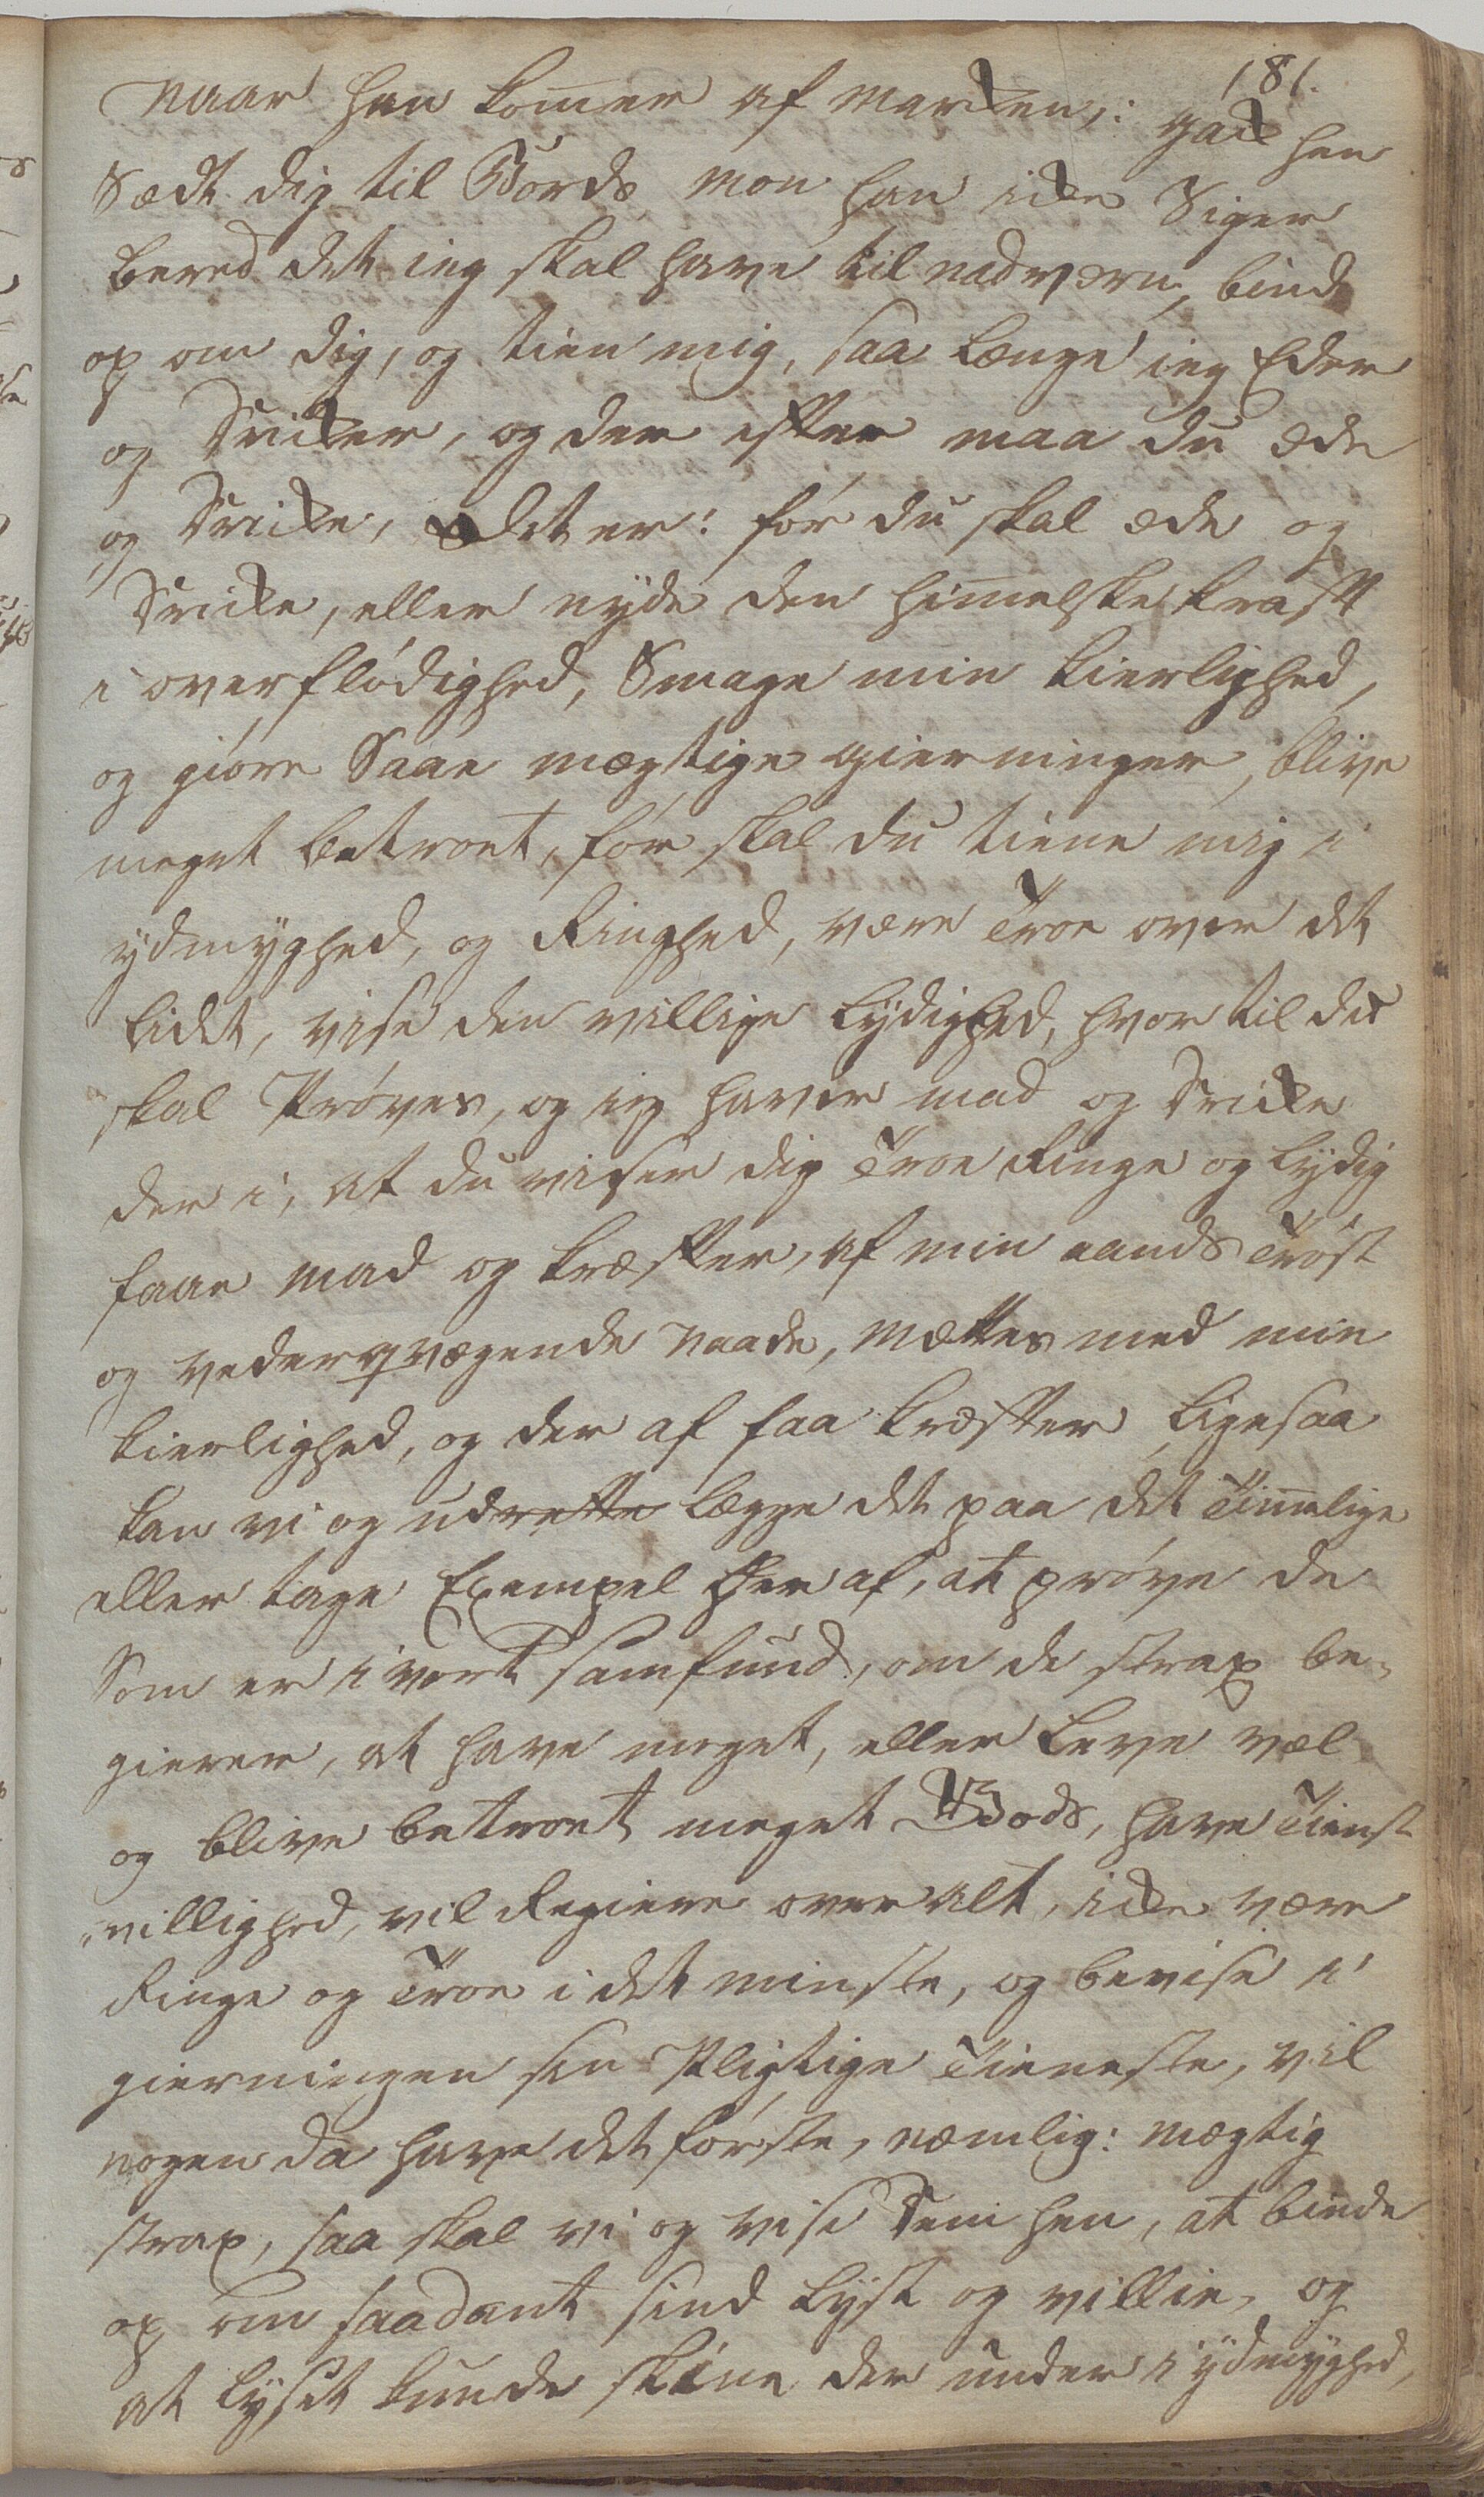 181.
naar han kom̅er af marken,: gak hen
Sædt dig til Bords, mon han ikke Siger
bered det ieg skal have til nadvern, bind
op om dig, og tien mig, saa længe ieg Eder
og Driker, og der efter maa du æde
og Drike, det er: før du skal æde og
Drike, eller nyde den him̅elske kraft
i overflødighed, Smage min kierlighed,
og giøre Saae mægtige gierninger, blive
meget betroet, før skal du tiene mig i
ydmyghed, og Ringhed, være Troe over det
lidet, vise den villige lydighed, hvor til du
skal Prøves, og ieg haver mad og Drike
der i, at du viser dig Troe Ringe og lydig
faae mad og kræfter, af min aands Trøst
og vederqvægende naade, mættes med min
kierlighed, og der af faa kræfter, ligesaa
kan vi og udrette lægge det paa det Tim̅elige
eller tage Exempel her af, at prøve de
Som er i vort samfund, om de strax be-
gierer, at have meget, eller leve vel
og blive betroet meget Gods, have Tienst
villighed, vil Regiere over alt, ikke være
Ringe og Troe i det minste, og bevise i
gierningen sin Pligtige Tieneste, vil
nogen da have det første, nemlig: mægtig
strax, saa skal vi og vise dem hen, at binde
op om saadant sind lyst og villie, og
at lyset kunde skine der under i ydmyghed,